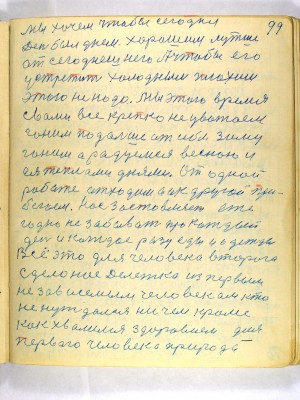 99
Мы хочем чтобы сегодня
Ден был днем хорошим лутше
от сегоднешнего А чтобы его
холодным плохим
этого не надо. Мы этого время
с вами все крепко не уважаем
гоним подальше от себя зиму
гоним а радуемся весною и
теплами днями. От одной
работе отходим а к другой при-
бегаем. Нас заставляет еже
годно не забыват про каждый
ден и каждое разу еды и одежды
Всё это для человека второго
сделоное Дележка из первым
не зависемым человекам кто
не нуждался ни чем кроме
как хвалился здоровием для
первого человека природа